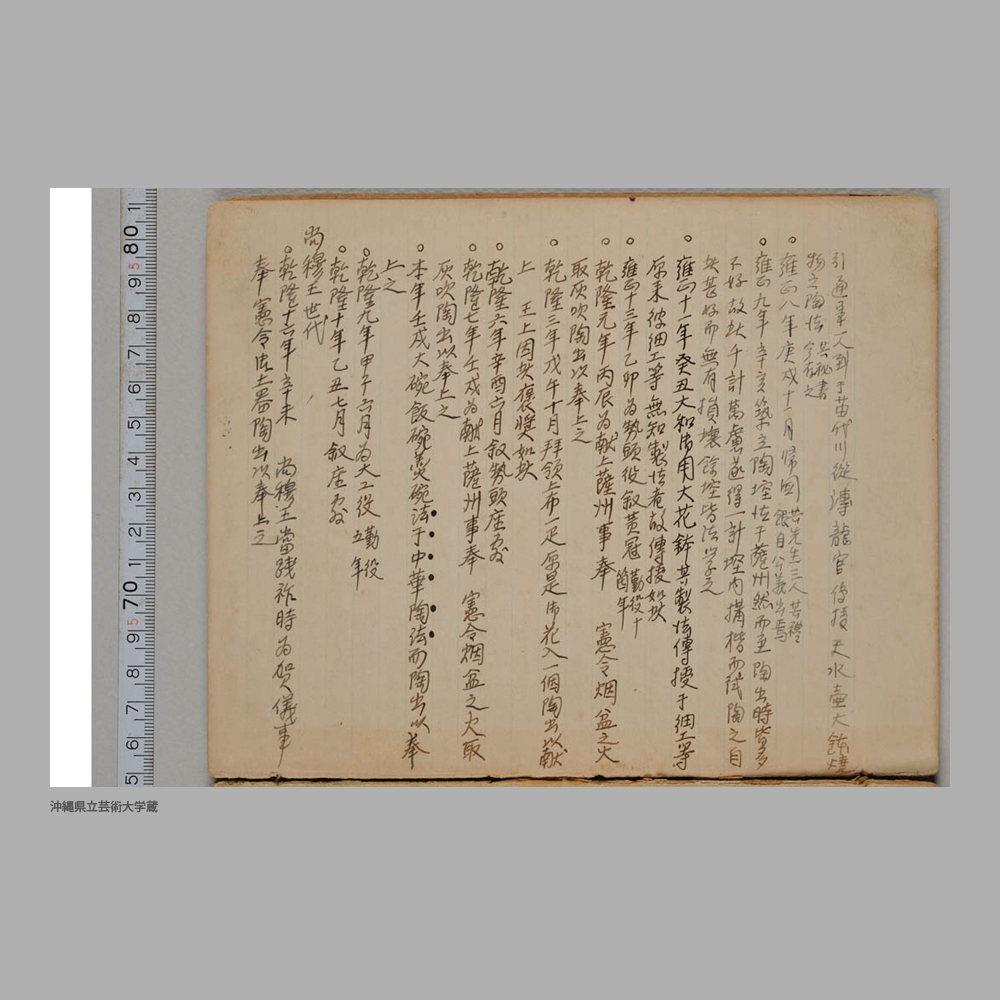 引通事一人到于苗代川從溥龍官傳授天水壷大鉢焼
物之陶法其秘書今有之
雍正八年庚戌十一月帰国其先生三人其禮銀自公義出焉
雍正九年辛亥築立陶塩佐于薩州然而至陶出時皆多
不好故於千計萬慮遂得一計塩内構楷而試陶之自
其甚好而無有損壊餘塩皆法学之
雍正十一年癸丑大和御用大花鉢其製法傳授于細工等
原来彼細工等無知製法者故傳授如斯
雍正十三年乙卯為勢頭役叙黄冠勤役十箇年
乾隆元年丙辰為献上薩州事奉 憲令烟盆之火
取灰吹陶出以奉上之
乾隆三年戊午十月拜領上布一疋原是御花入一個陶出以献
上 王上因其褒奨如斯
乾隆六年辛酉六月叙勢頭座敷
乾隆七年壬戌為献上薩州事奉 憲令烟盆之火取
灰吹陶出以奉上之
本年壬戌大碗飯碗羹碗法于中華陶法而陶出以奉
上之
乾隆九年甲子六月為大工役勤役五年
乾隆十年乙丑七月叙座敷
尚穆王世代
乾隆十六年辛未 尚穆王當践祚時為賀儀事
奉 憲令焼土器陶出以奉上之
80 1
9 5
8
7
6
5
4
3
2
1
70 1
9 5
8
7
6
5
沖縄県立芸術大学蔵